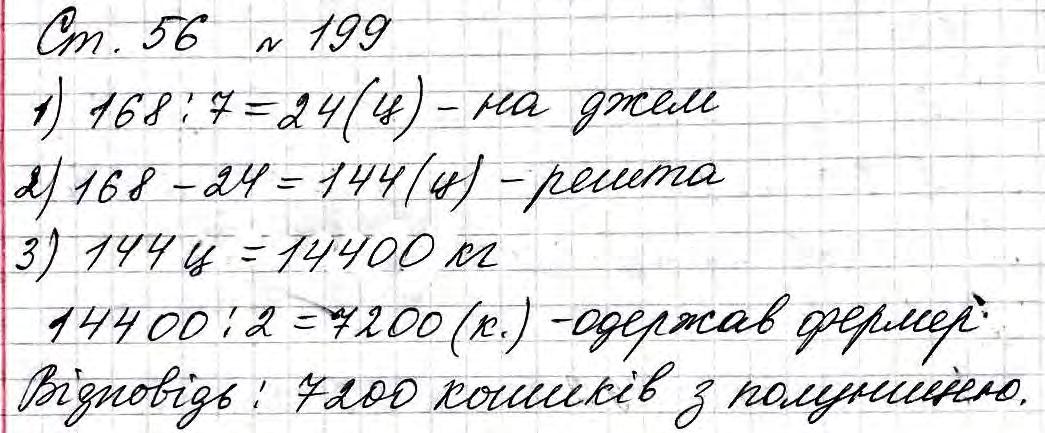 Ст. 56 № 199
1) 168 : 7 = 24 (ц) – на джем
2) 168 – 24 = 144 (ц) – решта
3) 144 ц = 14400 кг
14400 : 2 = 7200 (к.) – одержав фермер.
Відповідь : 7200 кошиків з полуницею.